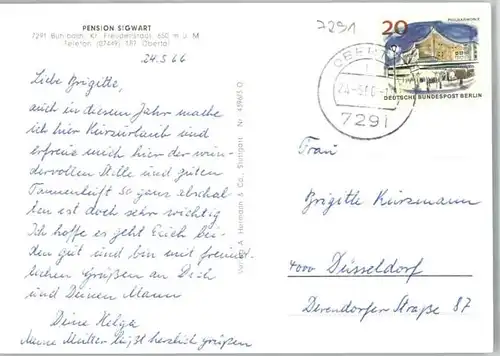 PENSION SIGWART
7291 Buhlbach, Kr. Freudenstadt, 650 m ü. M.
Telefon (07449) 187 Obertal
24.5.66
Liebe Brigitte,
auch in diesem Jahr mache
ich hier Kurzurlaub und
erfreue mich hier der wun-
dervollen Stille und guten
Tannenluft. So ganz abschal-
ten ist doch sehr wichtig
Ich hoffe es geht Euch bei-
den gut und bin mit freund-
lichen Grüßen an Dich
und Deinen Mann
Deine Helga
Meine Mutter läßt herzlich grüßen
A. Hermann & Co., Stuttgart Nr.
7291
20
PHILHARMONIE
DEUTSCHE BUNDESPOST BERLIN
7291
Frau
Brigitte Kürzmann
4000 Düsseldorf
Derendorfer Straße 87